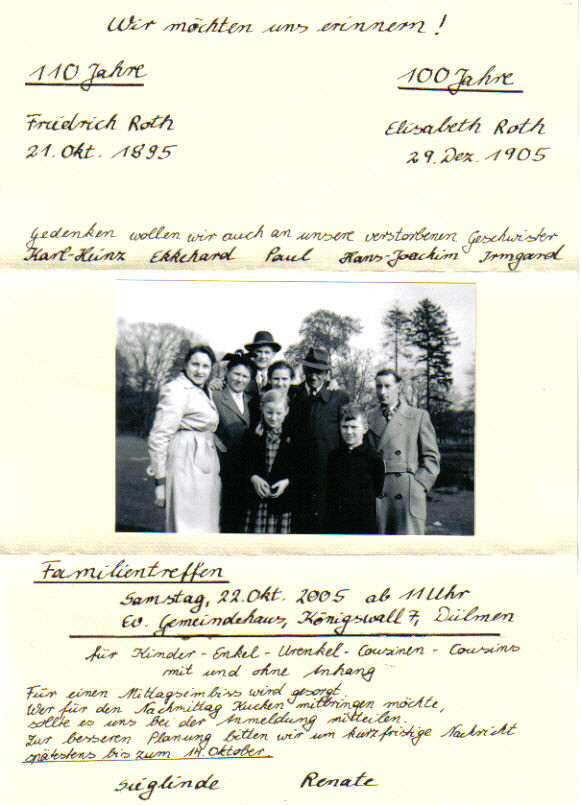 Wir möchten uns erinnern!
110 Jahre 100 Jahre
Friedrich Roth Elisabeth Roth
21. Okt. 1895 29. Dez. 1905
Gedenken wollen wir auch an unsere verstorbenen Geschwister
Karl-Heinz Ekkehard Paul Hans-Joachim Irmgard
Familientreffen
Samstag, 22. Okt. 2005 ab 11 Uhr
Ev. Gemeindehaus, Königswall 7, Dülmen
für Kinder - Enkel - Urenkel - Cousinen - Cousins
mit und ohne Anhang
Für einen Mittagsimbiss wird gesorgt.
Wer für den Nachmittag Kuchen mitbringen möchte,
sollte es uns bei der Anmeldung mitteilen.
Zur besseren Planung bitten wir um kurzfristige Nachricht
spätestens bis zum 14. Oktober.
Sieglinde Renate